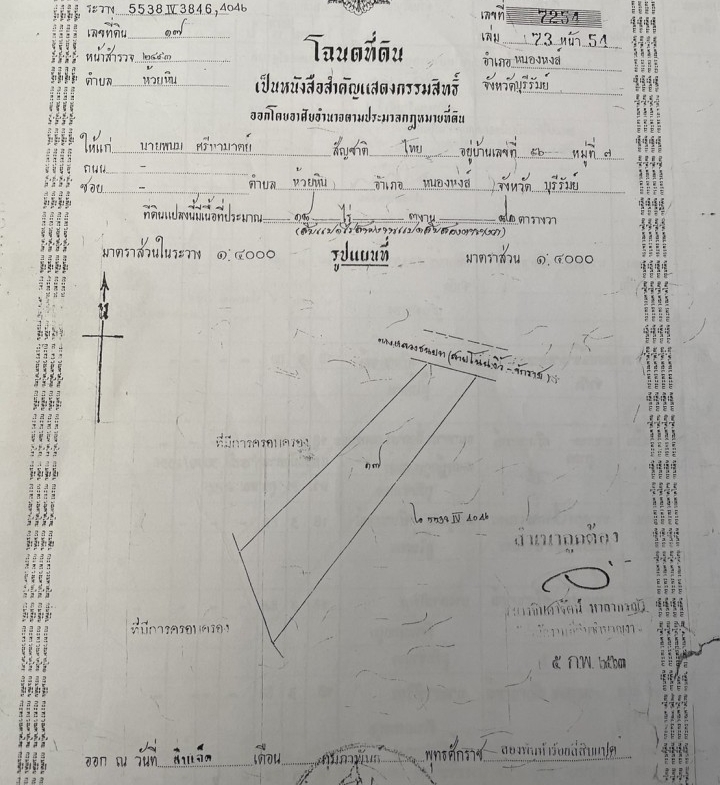 ระวาง 5538 IV 3846, 4046
เลขที่ 7254
เลขที่ดิน ๑๗
เล่ม 73 หน้า 54
หน้าสำรวจ ๒๔๙๓
โฉนดที่ดิน
อำเภอ หนองหงส์
ตำบล ห้วยหิน
เป็นหนังสือสำคัญแสดงกรรมสิทธิ์
จังหวัด บุรีรัมย์
ออกโดยอาศัยอำนาจตามประมวลกฎหมายที่ดิน
ให้แก่ นายพนม สัญชาติ ไทย อยู่บ้านเลขที่ ๕๖ หมู่ที่ ๗
ถนน -
ซอย - ตำบล ห้วยหิน อำเภอ หนองหงส์ จังหวัด บุรีรัมย์
ที่ดินแปลงนี้มีเนื้อที่ประมาณ ๑๘ ไร่ ๓ งาน ๘๒ ตารางวา
(สิบแปดไร่สามงานแปดสิบสองตารางวา)
มาตราส่วนในระวาง ๑:๔๐๐๐ รูปแผนที่ มาตราส่วน ๑:๔๐๐๐
น
ทางหลวงชนบท
ที่มีการครอบครอง
๑๗
5538 IV 4046
สำเนาถูกต้อง
ที่มีการครอบครอง
๕ กพ. ๒๕๖๓
ออก ณ วันที่ สิบเอ็ด เดือน กุมภาพันธ์ พุทธศักราช สองพันห้าร้อยสี่สิบแปด